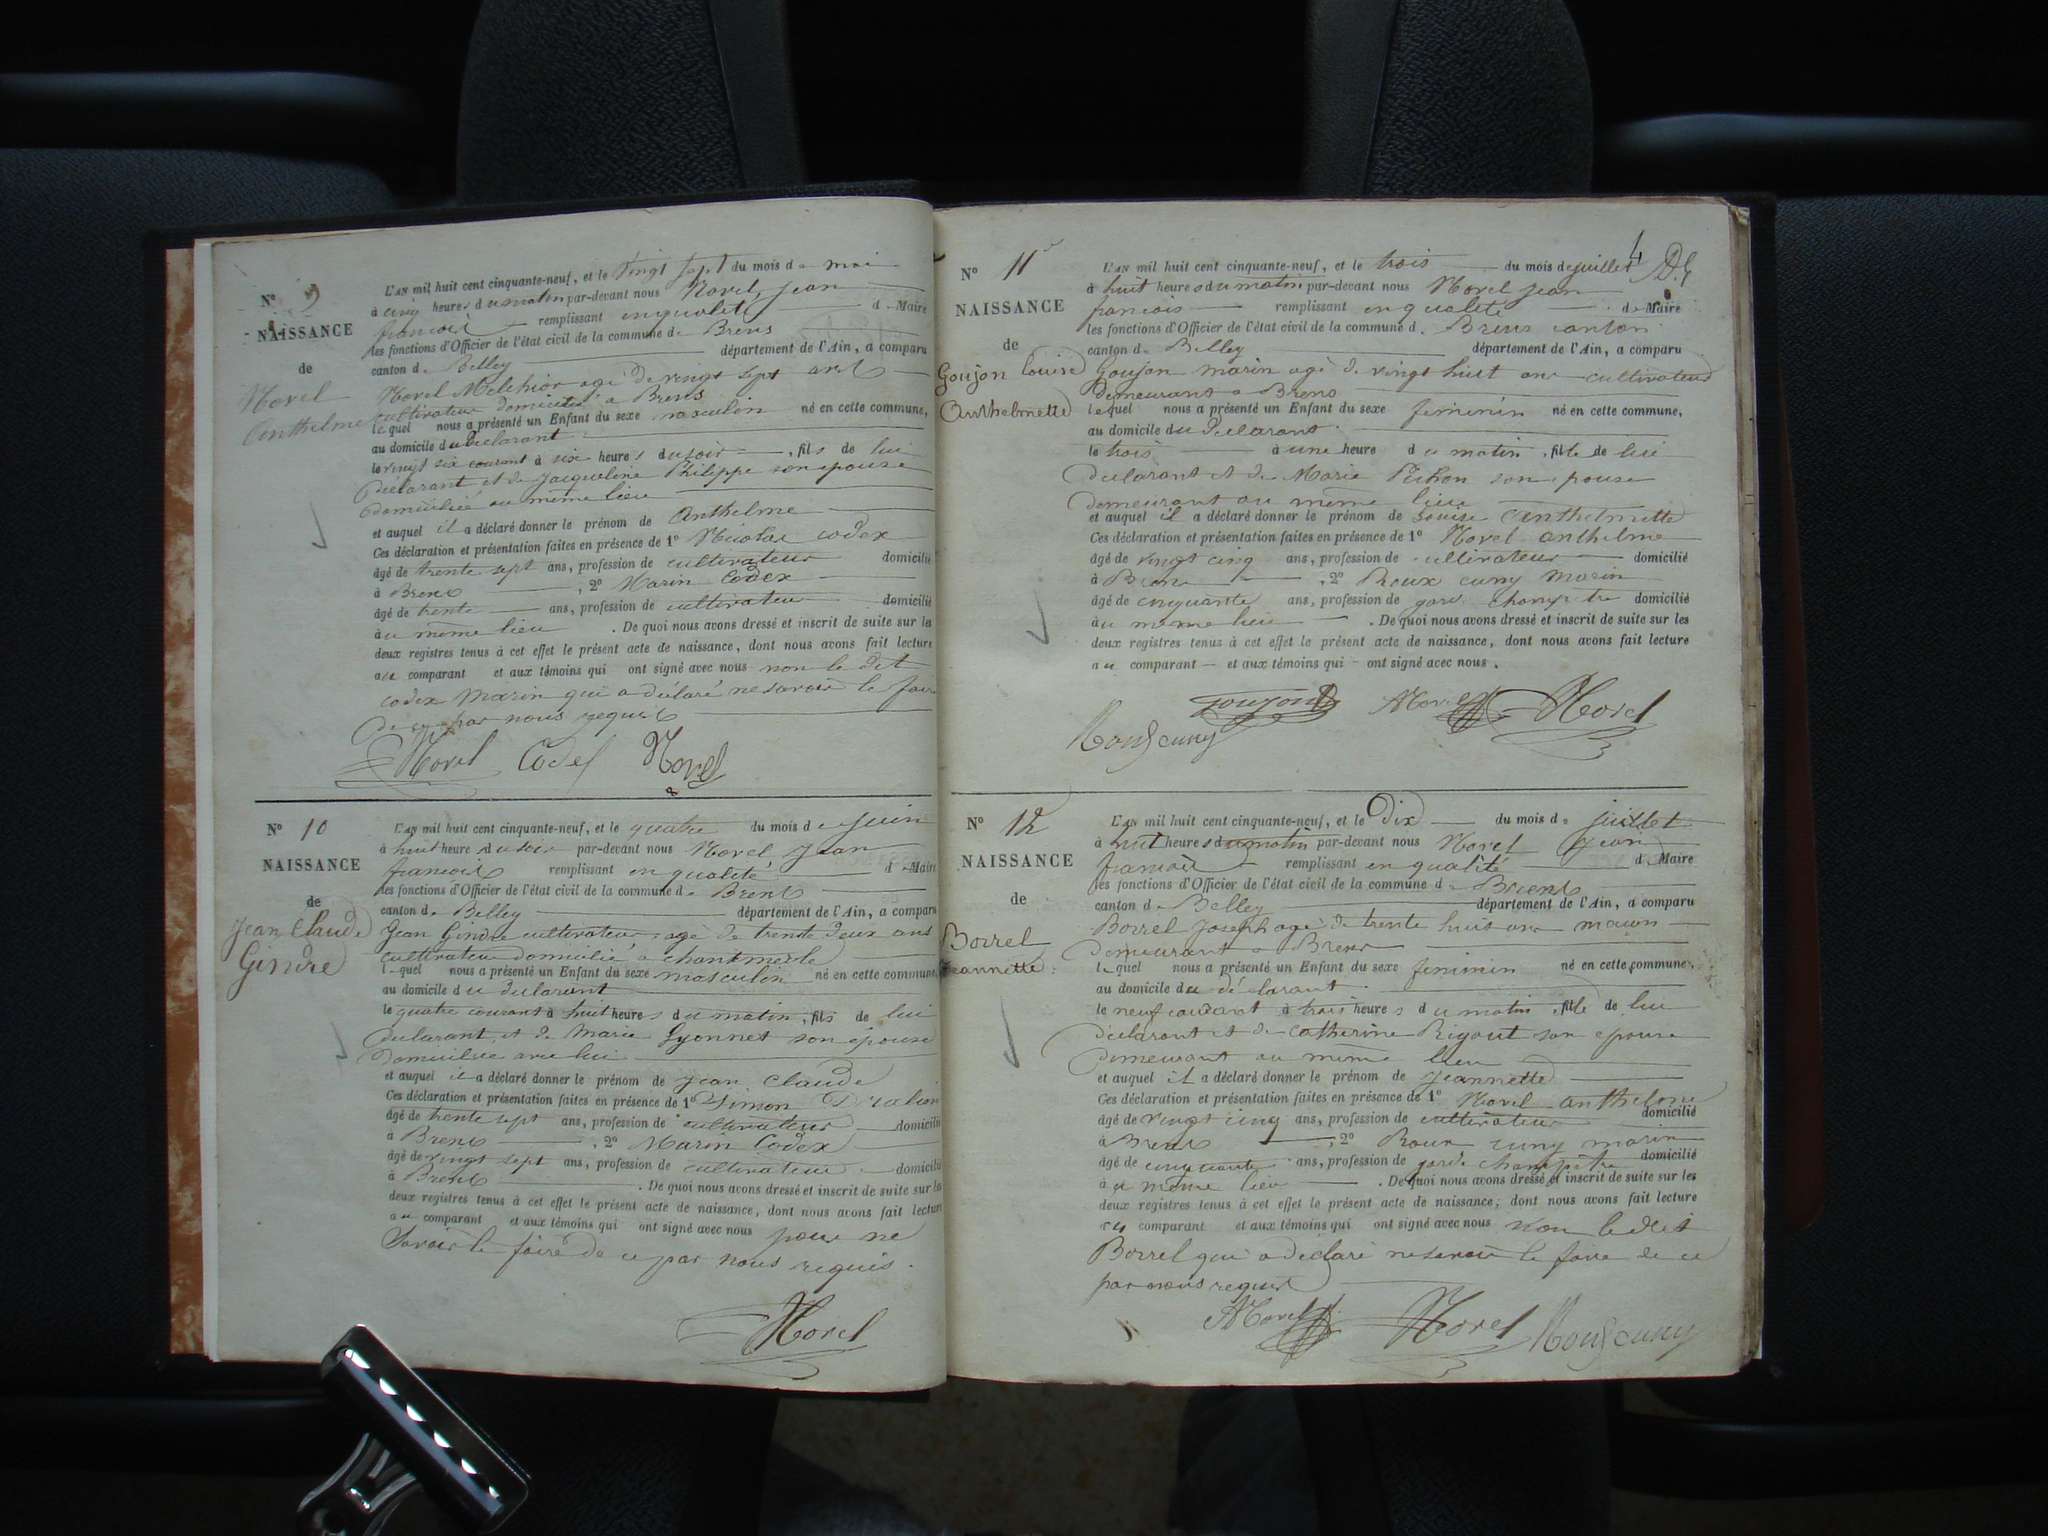 N° 9
NAISSANCE
de
Morel
Anthelme
L'AN mil huit cent cinquante-neuf, et le vingt sept du mois de mai
à cinq heures du matin par-devant nous Morel, jean
francois remplissant en qualité de Maire
les fonctions d'Officier de l'état civil de la commune de Brens
canton de Belley département de l'Ain, a comparu
Morel Melchior agé de vingt sept ans
cultivateur domicilié a Brens
lequel nous a présenté un Enfant du sexe masculin né en cette commune,
au domicile du déclarant
le vingt six courant à six heures du soir, fils de lui
déclarant et de jacqueline Philippe son epouse
domiciliée au même lieu
et auquel il a déclaré donner le prénom de Anthelme
Ces déclaration et présentation faites en présence de 1° Nicolas codex
âgé de trente sept ans, profession de cultivateur domicilié
à Brens , 2° Marin Codex
âgé de trente ans, profession de cultivateur domicilié
au même lieu . De quoi nous avons dressé et inscrit de suite sur les
deux registres tenus à cet effet le présent acte de naissance, dont nous avons fait lecture
au comparant et aux témoins qui ont signé avec nous non le dit
codex Marin qui a déclaré ne savoir le faire
de ce par nous requis
Morel Codex Morel
N° 10
NAISSANCE
de
Jean Claude
Gindre
L'AN mil huit cent cinquante-neuf, et le quatre du mois de juin
à huit heures du soir par-devant nous Morel, jean
francois remplissant en qualité de Maire
les fonctions d'Officier de l'état civil de la commune de Brens
canton de Belley département de l'Ain, a comparu
Jean Gindre cultivateur agé de trente deux ans
cultivateur domicilié à chantmerle
lequel nous a présenté un Enfant du sexe masculin né en cette commune,
au domicile du declarant
le quatre courant à huit heures du matin, fils de lui
declarant et de Marie Lyonnet son épouse
domiciliée avec lui
et auquel il a déclaré donner le prénom de jean claude
Ces déclaration et présentation faites en présence de 1° Simon
âgé de trente sept ans, profession de cultivateur domicilié
à Brens , 2° Marin Codex
âgé de vingt sept ans, profession de cultivateur domicilié
à Brens . De quoi nous avons dressé et inscrit de suite sur les
deux registres tenus à cet effet le présent acte de naissance, dont nous avons fait lecture
au comparant et aux témoins qui ont signé avec nous pour ne
Savoir le faire de ce par nous requis.
Morel
4
N° 11
NAISSANCE
de
Goujon Louise
Anthelmette
L'AN mil huit cent cinquante-neuf, et le trois du mois de juillet
à huit heures du matin par-devant nous Morel jean
francois remplissant en qualité de Maire
les fonctions d'Officier de l'état civil de la commune d. Brens canton
canton de Belley département de l'Ain, a comparu
Goujon marin agé de vingt huit ans cultivateur
demeurant a Brens
lequel nous a présenté un Enfant du sexe feminin né en cette commune,
au domicile du déclarant
le trois à une heure du matin, fille de lui
declarant et de Marie Pichon son epouse
demeurant au même lieu
et auquel il a déclaré donner le prénom de Louise Anthelmette
Ces déclaration et présentation faites en présence de 1° Morel anthelme
âgé de vingt cinq ans, profession de cultivateur domicilié
à Brens , 2° Roux cuny Marin
âgé de cinquante ans, profession de garde champetre domicilié
au même lieu . De quoi nous avons dressé et inscrit de suite sur les
deux registres tenus à cet effet le présent acte de naissance, dont nous avons fait lecture
au comparant et aux témoins qui ont signé avec nous.
Goujon AMorel Morel
Roux cuny
N° 12
NAISSANCE
de
Borrel
Jeannette
L'AN mil huit cent cinquante-neuf, et le Dix du mois de juillet
à huit heures du matin par-devant nous Morel jean
francois remplissant en qualité d Maire
les fonctions d'Officier de l'état civil de la commune de Brens
canton de Belley département de l'Ain, a comparu
Borrel Joseph agé de trente huit ans macon
demeurant a Brens
lequel nous a présenté un Enfant du sexe feminin né en cette commune,
au domicile du déclarant
le neuf courant à trois heures du matin, fille de lui
déclarant et de Catherine Rigout son epouse
demeurant au même lieu
et auquel il a déclaré donner le prénom de jeannette
Ces déclaration et présentation faites en présence de 1° Morel anthelme
âgé de vingt cinq ans, profession de cultivateur domicilié
à Brens , 2° Roux cuny marin
âgé de cinquante ans, profession de garde champêtre domicilié
au même lieu . De quoi nous avons dressé et inscrit de suite sur les
deux registres tenus à cet effet le présent acte de naissance; dont nous avons fait lecture
au comparant et aux témoins qui ont signé avec nous non le dit
Borrel qui a déclaré ne savoir le faire de ce
par nous requis
AMorel Morel Roux cuny